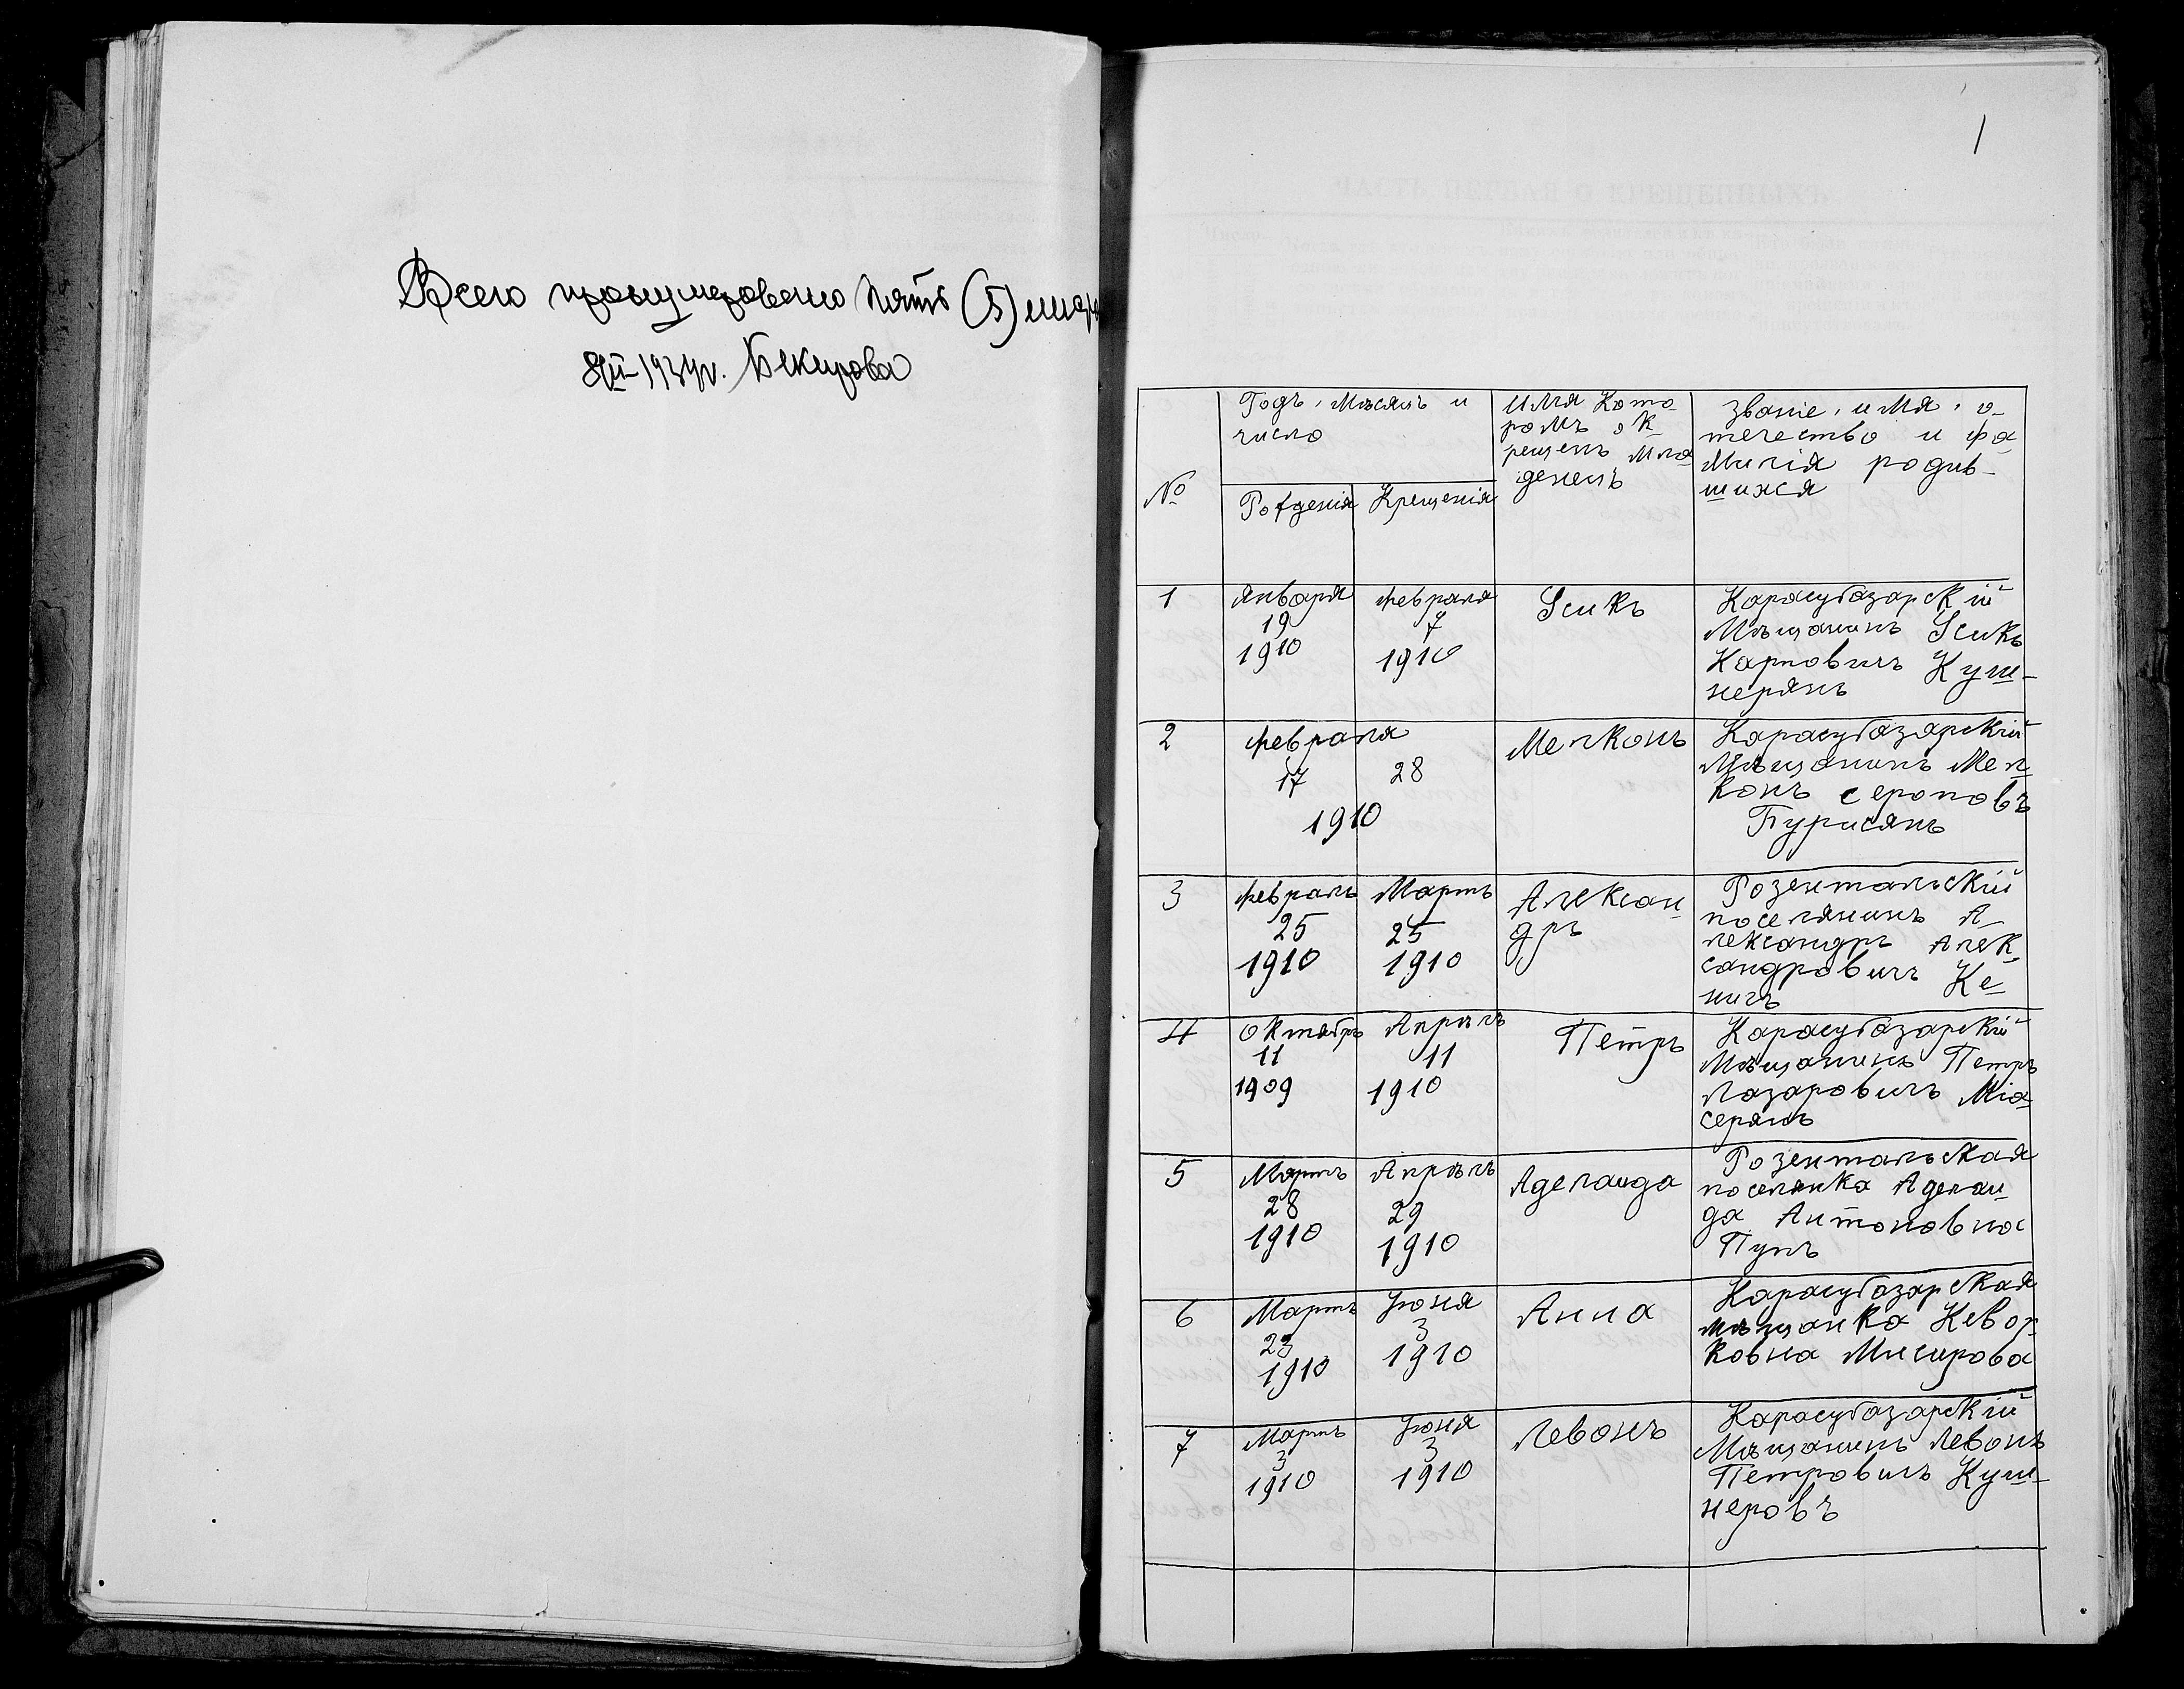 Всего пронумеровано пять (5)
Бекирова
1
№
Годъ, Мѣсяцъ и
число
Рожденія
Крещенія
имя Кото-
ромъ ок-
рещенъ мла
денецъ
звание, имя, о-
течество и фа
милія родив-
шихся
1
Января
19
1910
февраля
7
1910
Усикъ
Карасубазарскій
Мѣщанинъ Усикъ
Карповичъ Куш-
нерянъ
2
февраля
17
28
1910
Мелконъ
Карасубазарскій
Мѣщанинъ Мел-
конъ Сероповъ
Пурисянъ
3
февраль
25
1910
Мартъ
25
1910
Алексан-
дръ
Розентальскій
поселянинъ А-
лександръ Алек-
сандровичъ Ке-
нигъ
4
октябрь
11
1909
Апрѣль
11
1910
Петръ
Карасубазарскій
Мѣщанинъ Петръ
Лазаровичъ Міа-
серянъ
5
Мартъ
28
1910
Апрѣль
29
1910
Аделаида
Розентальская
поселянка Аделаи-
да Антоновна
Пупъ
6
Мартъ
23
1910
Іюня
3
1910
Анна
Карасубазарская
мѣщанка Кевор-
ковна Мисирова
7
Мартъ
3
1910
Іюня
3
1910
Левонъ
Карасубазарскій
Мѣщанинъ Левонъ
Петровичъ Куш-
неровъ